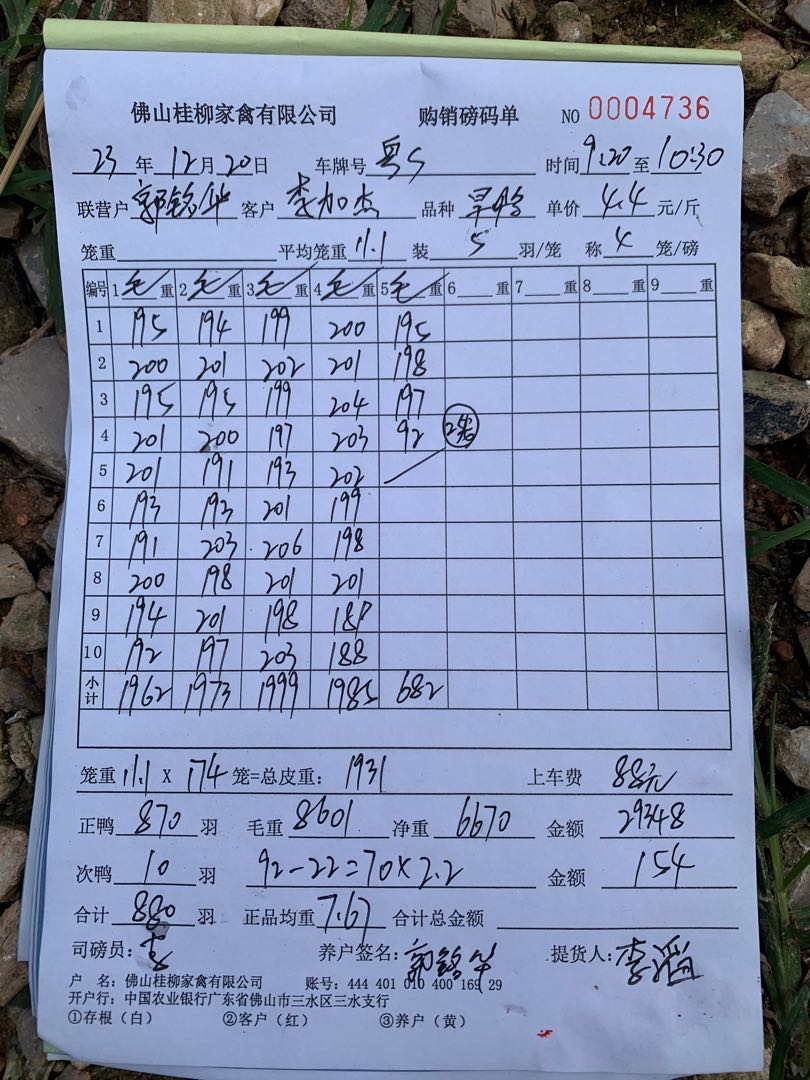 佛山桂柳家禽有限公司 购销磅码单 NO 0004736
23年12月20日 车牌号 粤S 时间9:20至10:30
联营户 郭铭华 客户 李加杰 品种 旱鸭 单价 4.4 元/斤
笼重 平均笼重11.1 装 5 羽/笼 称 4 笼/磅
编号 1毛重 2毛重 3毛重 4毛重 5毛重 6 重 7 重 8 重 9 重
1 195 194 199 200 195
2 200 201 202 201 198
3 195 195 199 204 197
4 201 200 197 203 92 2笼
5 201 191 193 202
6 193 193 201 199
7 191 203 206 198
8 200 198 201 201
9 194 201 198
10 192 197 203 188
小计 1962 1973 1999 1985 682
笼重 11.1 X 174 笼=总皮重: 1931 上车费 88元
正鸭 870 羽 毛重 8601 净重 6670 金额 29348
次鸭 10 羽 92-22=70×2.2 金额 154
合计 880 羽 正品均重 7.67 合计总金额
司磅员: 李 养户签名: 郭铭华 提货人: 李
户 名: 佛山桂柳家禽有限公司 账号: 444 401 010 400 169 29
开户行: 中国农业银行广东省佛山市三水区三水支行
①存根(白) ②客户(红) ③养户(黄)